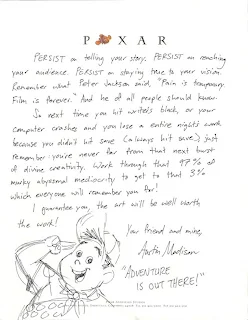 P XAR
PERSIST on telling your story. PERSIST on reaching
your audience. PERSIST on staying true to your vision.
Remember what Peter Jackson said, "Pain is temporary.
Film is forever." And he of all people should know.
So next time you hit writer's block, or your
computer crashes and you lose a entire night's work
because you didn't hit save (always hit save), just
remember: you're never far from that next burst
of divine creativity. Work through that 97% of
murky abysmal mediocrity to get to that 3%
which everyone will remember you for!
I guarantee you, the art will be well worth
the work!
Your friend and mine,
Austin Madison
"ADVENTURE
IS OUT THERE!"